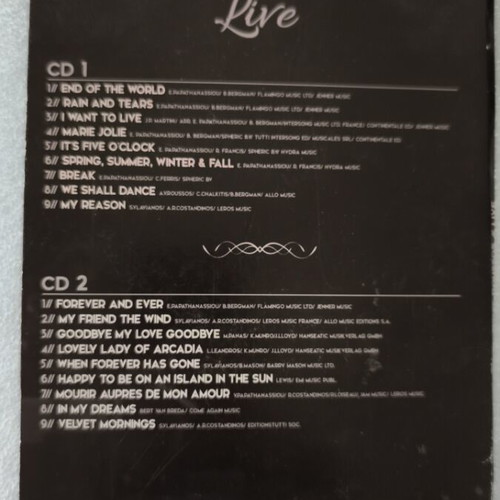 Live
CD 1
1// END OF THE WORLD E.PAPATHANASSIOU/ B.BERGMAN/ FLAMINGO MUSIC LTD/ JENNER MUSIC
2// RAIN AND TEARS E.PAPATHANASSIOU/ B.BERGMAN/ FLAMINGO MUSIC LTD/ JENNER MUSIC
3// I WANT TO LIVE J.P. MARTINI/ ARR. E. PAPATHANASSIOU/ B. BERGMAN/INTERSONG MUSIC LTD. FRANCE/ CONTINENTALE ED/ JENNER MUSIC
4// MARIE JOLIE E. PAPATHANASSIOU/ B. BERGMAN/SPHERIC B.V. TUTTI INTERSONG ED/ MUSICALES SRL/ CONTINENTALE ED
5// IT'S FIVE O'CLOCK E. PAPATHANASSIOU/ R. FRANCIS/ SPHERIC B.V/ HYDRA MUSIC
6// SPRING, SUMMER, WINTER & FALL E. PAPATHANASSIOU/ R. FRANCIS/ HYDRA MUSIC
7// BREAK E.PAPATHANASSIOU/ C.FERSIS/ SPHERIC BV
8// WE SHALL DANCE A.ROUSSOS/ C.CHALKITIS/B.BERGMAN/ ALLO MUSIC
9// MY REASON S.VLAVIANOS/ A.R.COSTANDINOS/ LEROS MUSIC
CD 2
1// FOREVER AND EVER E.PAPATHANASSIOU/ B.BERGMAN/ FLAMINGO MUSIC LTD/ JENNER MUSIC
2// MY FRIEND THE WIND S.VLAVIANOS/ A.R.COSTANDINOS/ LEROS MUSIC FRANCE/ ALLO MUSIC EDITIONS S.A.
3// GOODBYE MY LOVE GOODBYE M.PANAS/ K.MUNRO/J.LLOYD/ HANSEATIC MUSIKVERLAG GMBH
4// LOVELY LADY OF ARCADIA L.LEANDROS/ K.MUNRO/ J.LLOYD/ HANSEATIC MUSIKVERLAG GMBH
5// WHEN FOREVER HAS GONE S.VLAVIANOS/B.MASON/ BARRY MASON MUSIC LTD.
6// HAPPY TO BE ON AN ISLAND IN THE SUN LEWIS/ EMI MUSIC PUBL.
7// MOURIR AUPRES DE MON AMOUR V.PAPATHANASSIOU/ R.COSTANDINOS/ MUSIC/ LEROS MUSIC
8// IN MY DREAMS BERT VAN BREDA/ COME AGAIN MUSIC
9// VELVET MORNINGS S.VLAVIANOS/ A.R.COSTANDINOS/ EDITIONSTUTTI SOC.